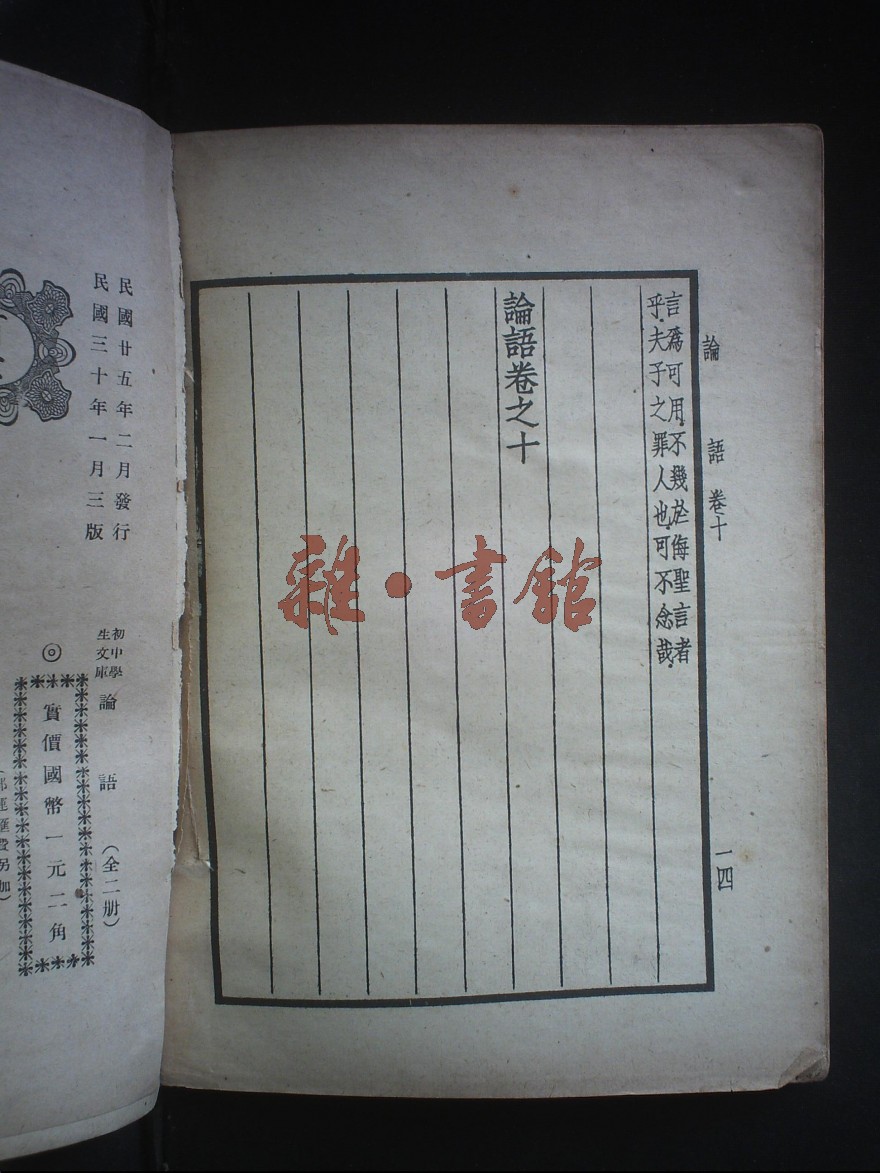 論語 卷十
一四
言爲可用不幾於侮聖言者
乎夫子之罪人也可不念哉
論語卷之十
雜·書館
民國廿五年二月發行
民國三十年一月三版
初中學
生文庫
論語(全二册)
◎實價國幣一元二角
費另加)